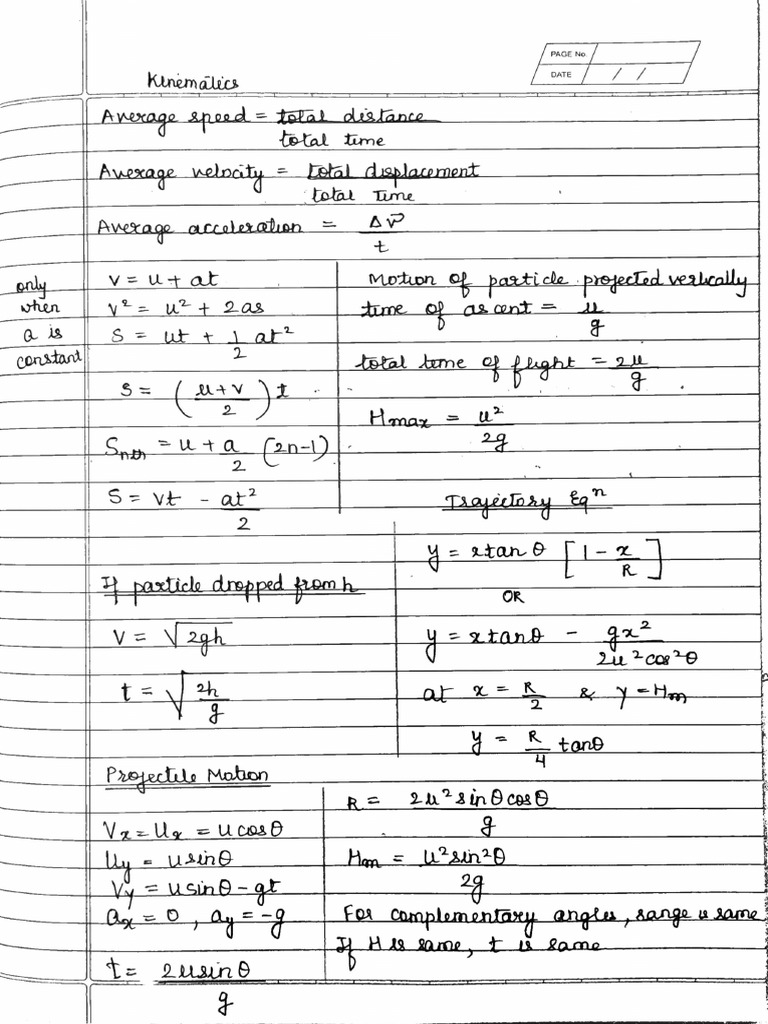 PAGE No.
DATE / /
Kinematics
Average speed = total distance
total time
Average velocity = total displacement
total time
Average acceleration = Δv⃗
t
only when a is constant
v = u + at
v² = u² + 2as
S = ut + 1/2 at²
S = (u+v/2) t
Snth = u + a/2 (2n-1)
S = vt - at²/2
Motion of particle projected vertically
time of ascent = u/g
total time of flight = 2u/g
Hmax = u²/2g
Trajectory Eqⁿ
y = xtanθ [1 - x/R]
OR
y = xtanθ - gx²/2u²cos²θ
at x = R/2 & y = Hm
y = R/4 tanθ
If particle dropped from h
v = √2gh
t = √2h/g
Projectile Motion
Vx = Ux = ucosθ
Uy = usinθ
Vy = usinθ - gt
ax = 0, ay = -g
t = 2usinθ/g
R = 2u²sinθcosθ/g
Hm = u²sin²θ/2g
For complementary angles, range is same
If H is same, t is same